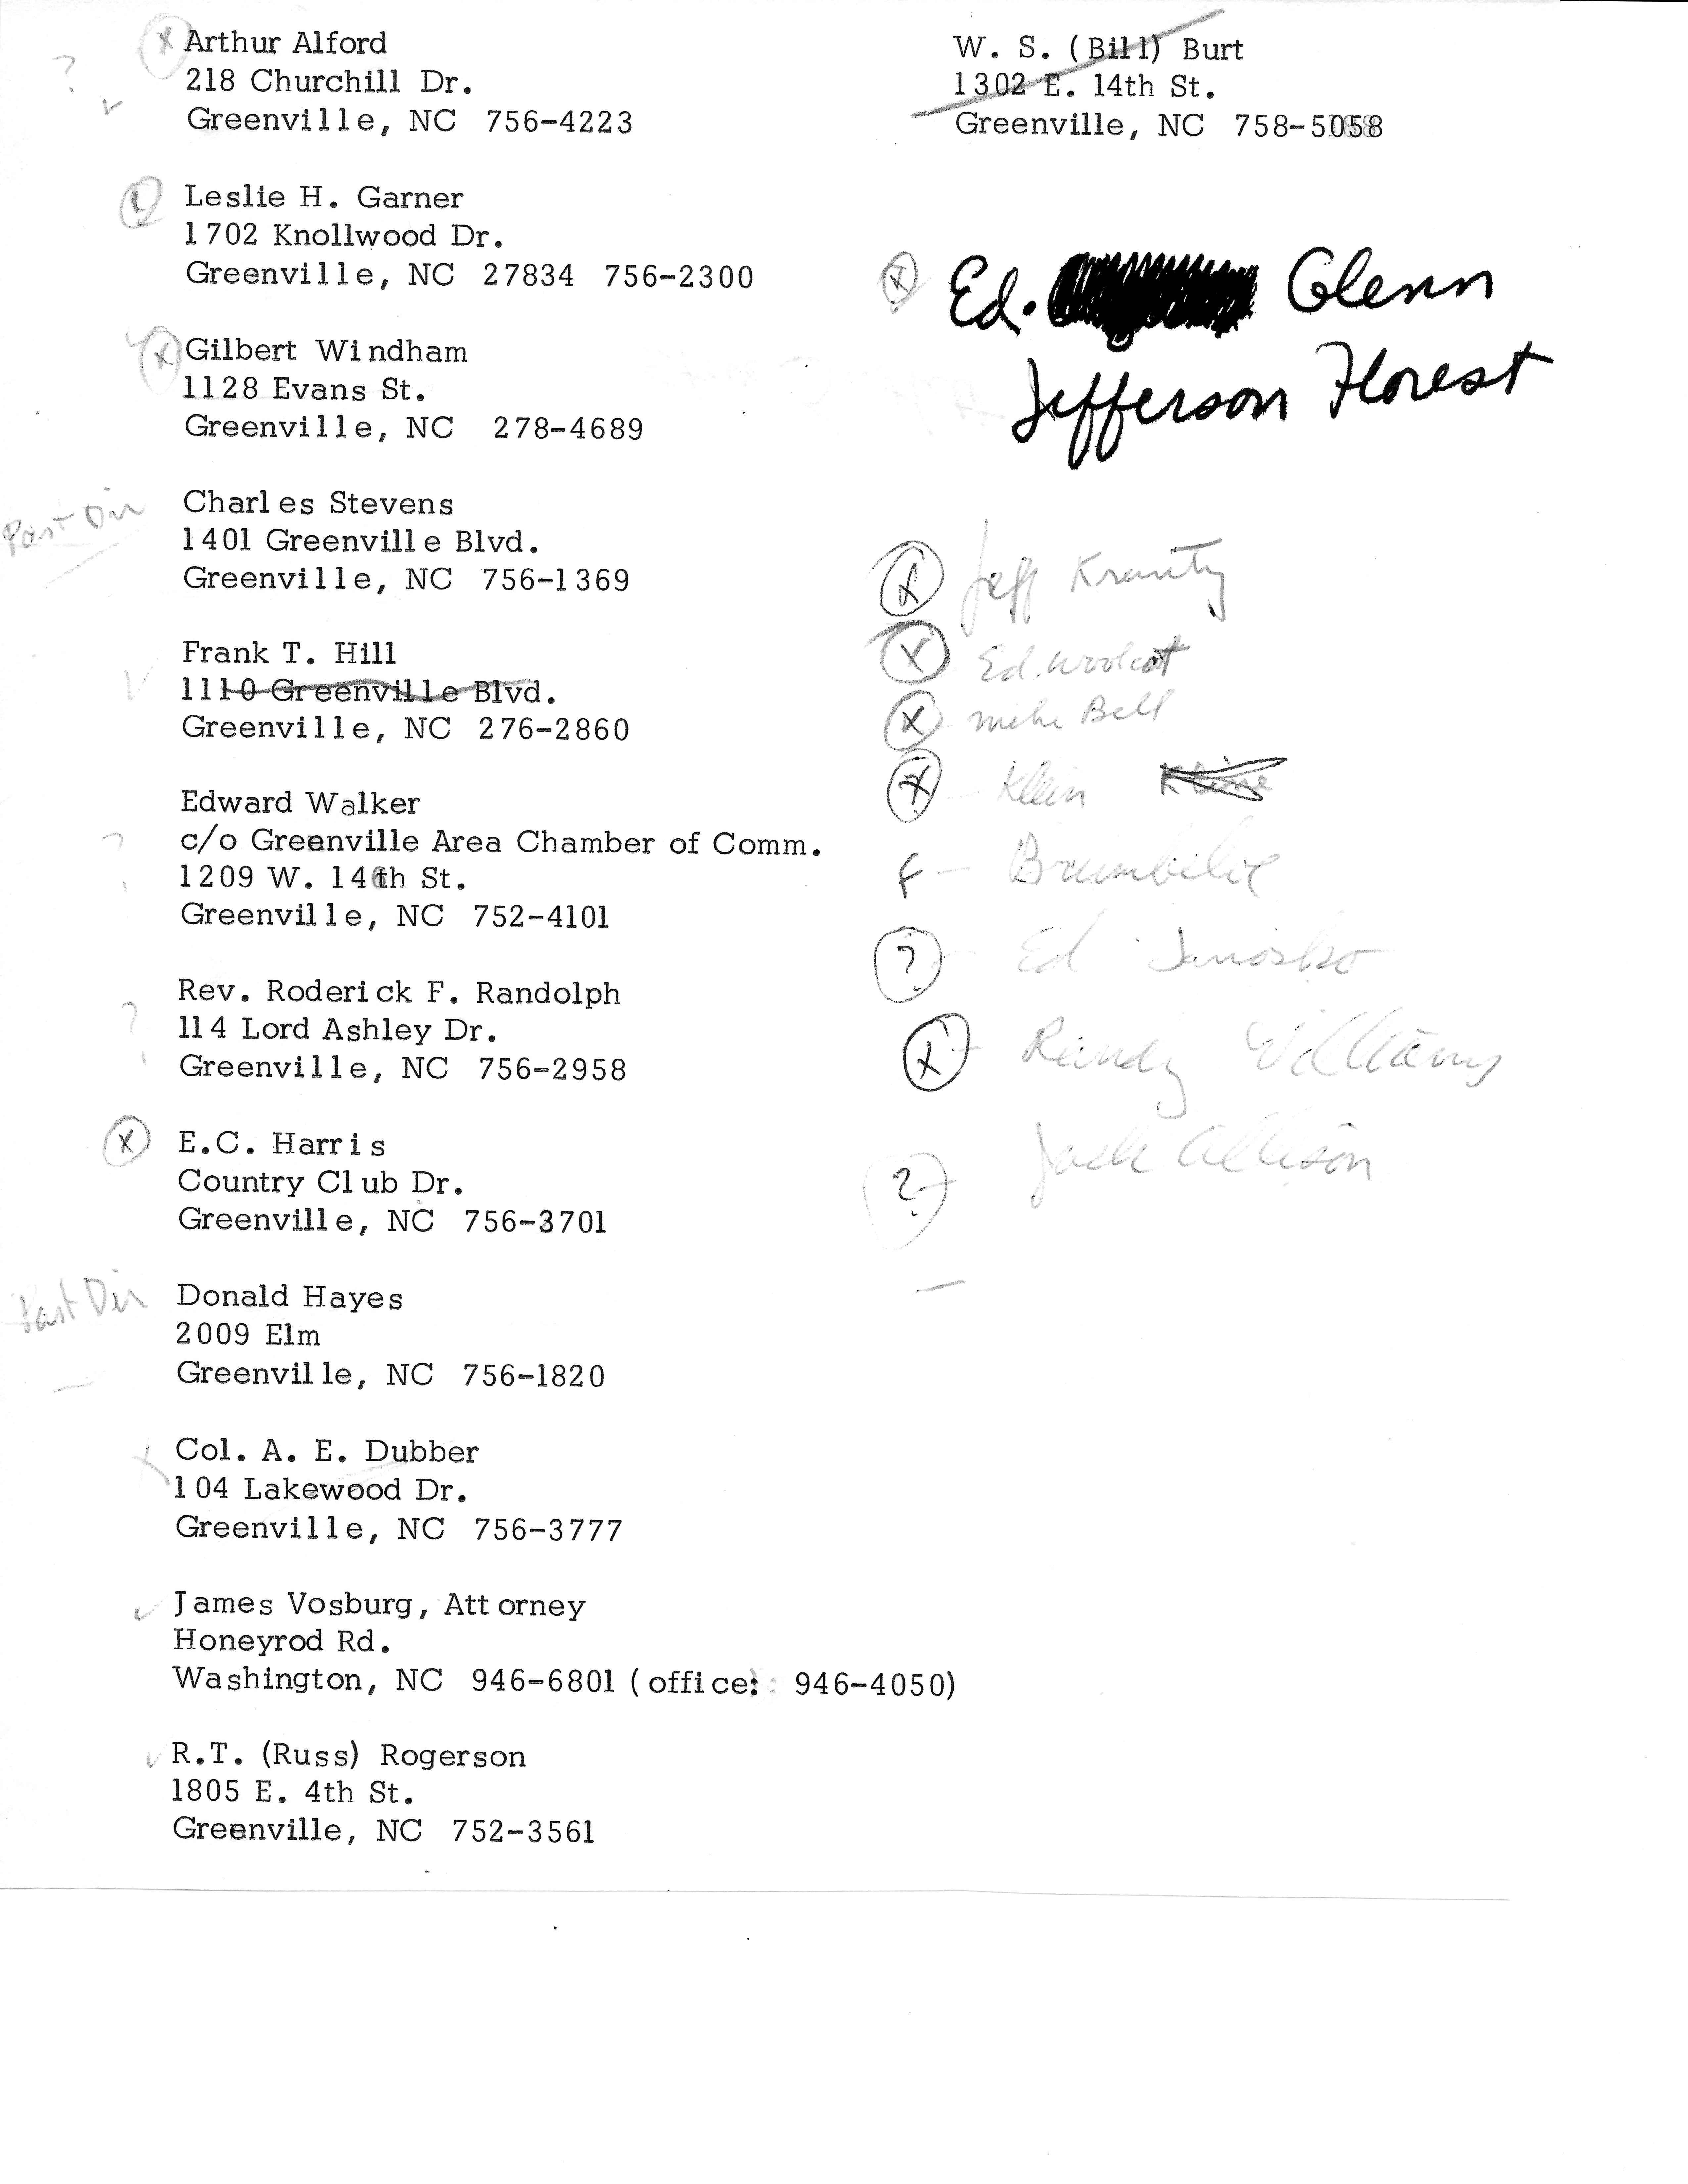 ? X Arthur Alford
218 Churchill Dr.
Greenville, NC 756-4223
Leslie H. Garner
1702 Knollwood Dr.
Greenville, NC 27834 756-2300
X Gilbert Windham
1128 Evans St.
Greenville, NC 278-4689
Past Dir Charles Stevens
1401 Greenville Blvd.
Greenville, NC 756-1369
Frank T. Hill
1110 Greenville Blvd.
Greenville, NC 276-2860
Edward Walker
? c/o Greenville Area Chamber of Comm.
1209 W. 14th St.
Greenville, NC 752-4101
Rev. Roderick F. Randolph
? 114 Lord Ashley Dr.
Greenville, NC 756-2958
X E.C. Harris
Country Club Dr.
Greenville, NC 756-3701
Past Dir Donald Hayes
2009 Elm
Greenville, NC 756-1820
Col. A. E. Dubber
104 Lakewood Dr.
Greenville, NC 756-3777
James Vosburg, Attorney
Honeyrod Rd.
Washington, NC 946-6801 (office: 946-4050)
R.T. (Russ) Rogerson
1805 E. 4th St.
Greenville, NC 752-3561
W. S. (Bill) Burt
1302 E. 14th St.
Greenville, NC 758-5058
X Ed. Glenn
Jefferson Florest
X Jeff
X Ed. Woolcot
X Mike Bell
X Klein Kline
F
? Ed
X Randy Williams
? Jack Allison